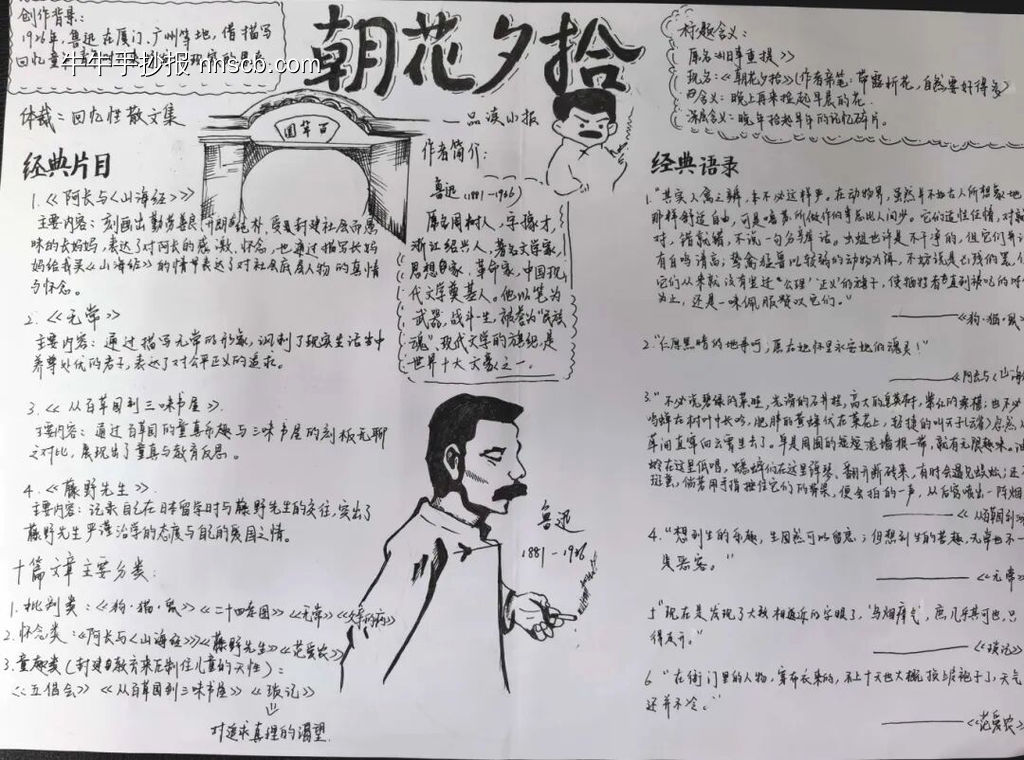 创作背景:
1926年,鲁迅在厦门、广州等地,借描写
回忆童
牛牛手抄报 nnscb.com
体裁:回忆性散文集
朝花夕拾
——品读小报
百草园
标题含义:
原名《旧事重提》
现名:《朝花夕拾》(作者亲笔:带露折花,自然要好得多)
含义:晚上再来捡起早晨的花.
深层含义:晚年拾起早年的记忆碎片。
经典片目
1.《阿长与〈山海经〉》
主要内容:刻画出勤劳善良
味的长妈妈,表达了对阿长的感激、怀念,也通过描写长妈
妈给我买《山海经》的情节表达了对社会底层人物的真情
与怀念。
2.《无常》
主要内容:通过描写无常的形象,讽刺了现实生活中
养尊处优的君子,表达了对公平正义的追求。
3.《从百草园到三味书屋》.
主要内容:通过百草园的童真乐趣与三味书屋的刻板无聊
之对比,展现出了童真与教育反思。
4.《藤野先生》.
主要内容:记录自己在日本留学时与藤野先生的交往,突出了
藤野先生严谨治学的态度与自己的爱国之情。
十篇文章主要分类:
1.批判类:《狗·猫·鼠》《二十四孝图》《无常》《父亲的病》
2.怀念类:《阿长与〈山海经〉》《藤野先生》《范爱农》
3.童趣类(封建教育来压制住儿童的天性):
《五倡会》《从百草园到三味书屋》《琐记》
对追求真理的渴望.
作者简介:
鲁迅(1881-1936)
原名周树人,字豫才,
浙江绍兴人,著名文学家,
思想家、革命家,中国现
代文学奠基人。他以笔为
武器,战斗一生,被誉为"民族
魂"、现代文学的旗帜,是
世界十大文豪之一.
鲁迅
1881-1936
经典语录
1."其实人禽之辨,本不必这样严,在动物界,虽然并不如古人所想象地
那样舒适自由,可是噜苏做作的事总比人间少。它们适性任情,对就
对,错就错,不说一句分辩话。虫蛆也许是不干净的,但它们并没
有自鸣清高;鸷禽猛兽以较弱的动物为饵,不妨说是凶残的罢,但
它们从来就没有竖过"公理""正义"的旗子,使牺牲者直到被吃的时
为上,还是一味佩服赞叹它们。"
——《狗·猫·鼠
2."仁厚黑暗的地母呵,愿在她怀里永安她的魂灵!"
——《阿长与〈山海
3."不必说碧绿的菜畦,光滑的石井栏,高大的皂荚树,紫红的桑椹;也不必
鸣蝉在树叶中长吟,肥胖的黄蜂伏在菜花上,轻捷的叫天子(云雀)忽然
草间直窜向云霄里去了。单是周围的短短泥墙根一带,就有无限趣味。油
蛉在这里低唱,蟋蟀们在这里弹琴、翻开断砖来,有时会遇见蜈蚣;还
斑蝥,倘若用手指按住它们的脊梁,便会拍的一声,从后窍喷出一阵烟
——《从百草园到
4."想到生的乐趣,生固然可以留恋;但想到生的苦趣,无常也不一
失恶客。"
——《无常
5"现在是发现了大致相近的字眼了,"乌烟瘴气",庶几乎其可也.只
得走开。"
——《琐记
6"在衙门里的人物,穿布衣来的,不上十天也大概换上皮袍子了,天气
还并不冷。"
——《范爱农